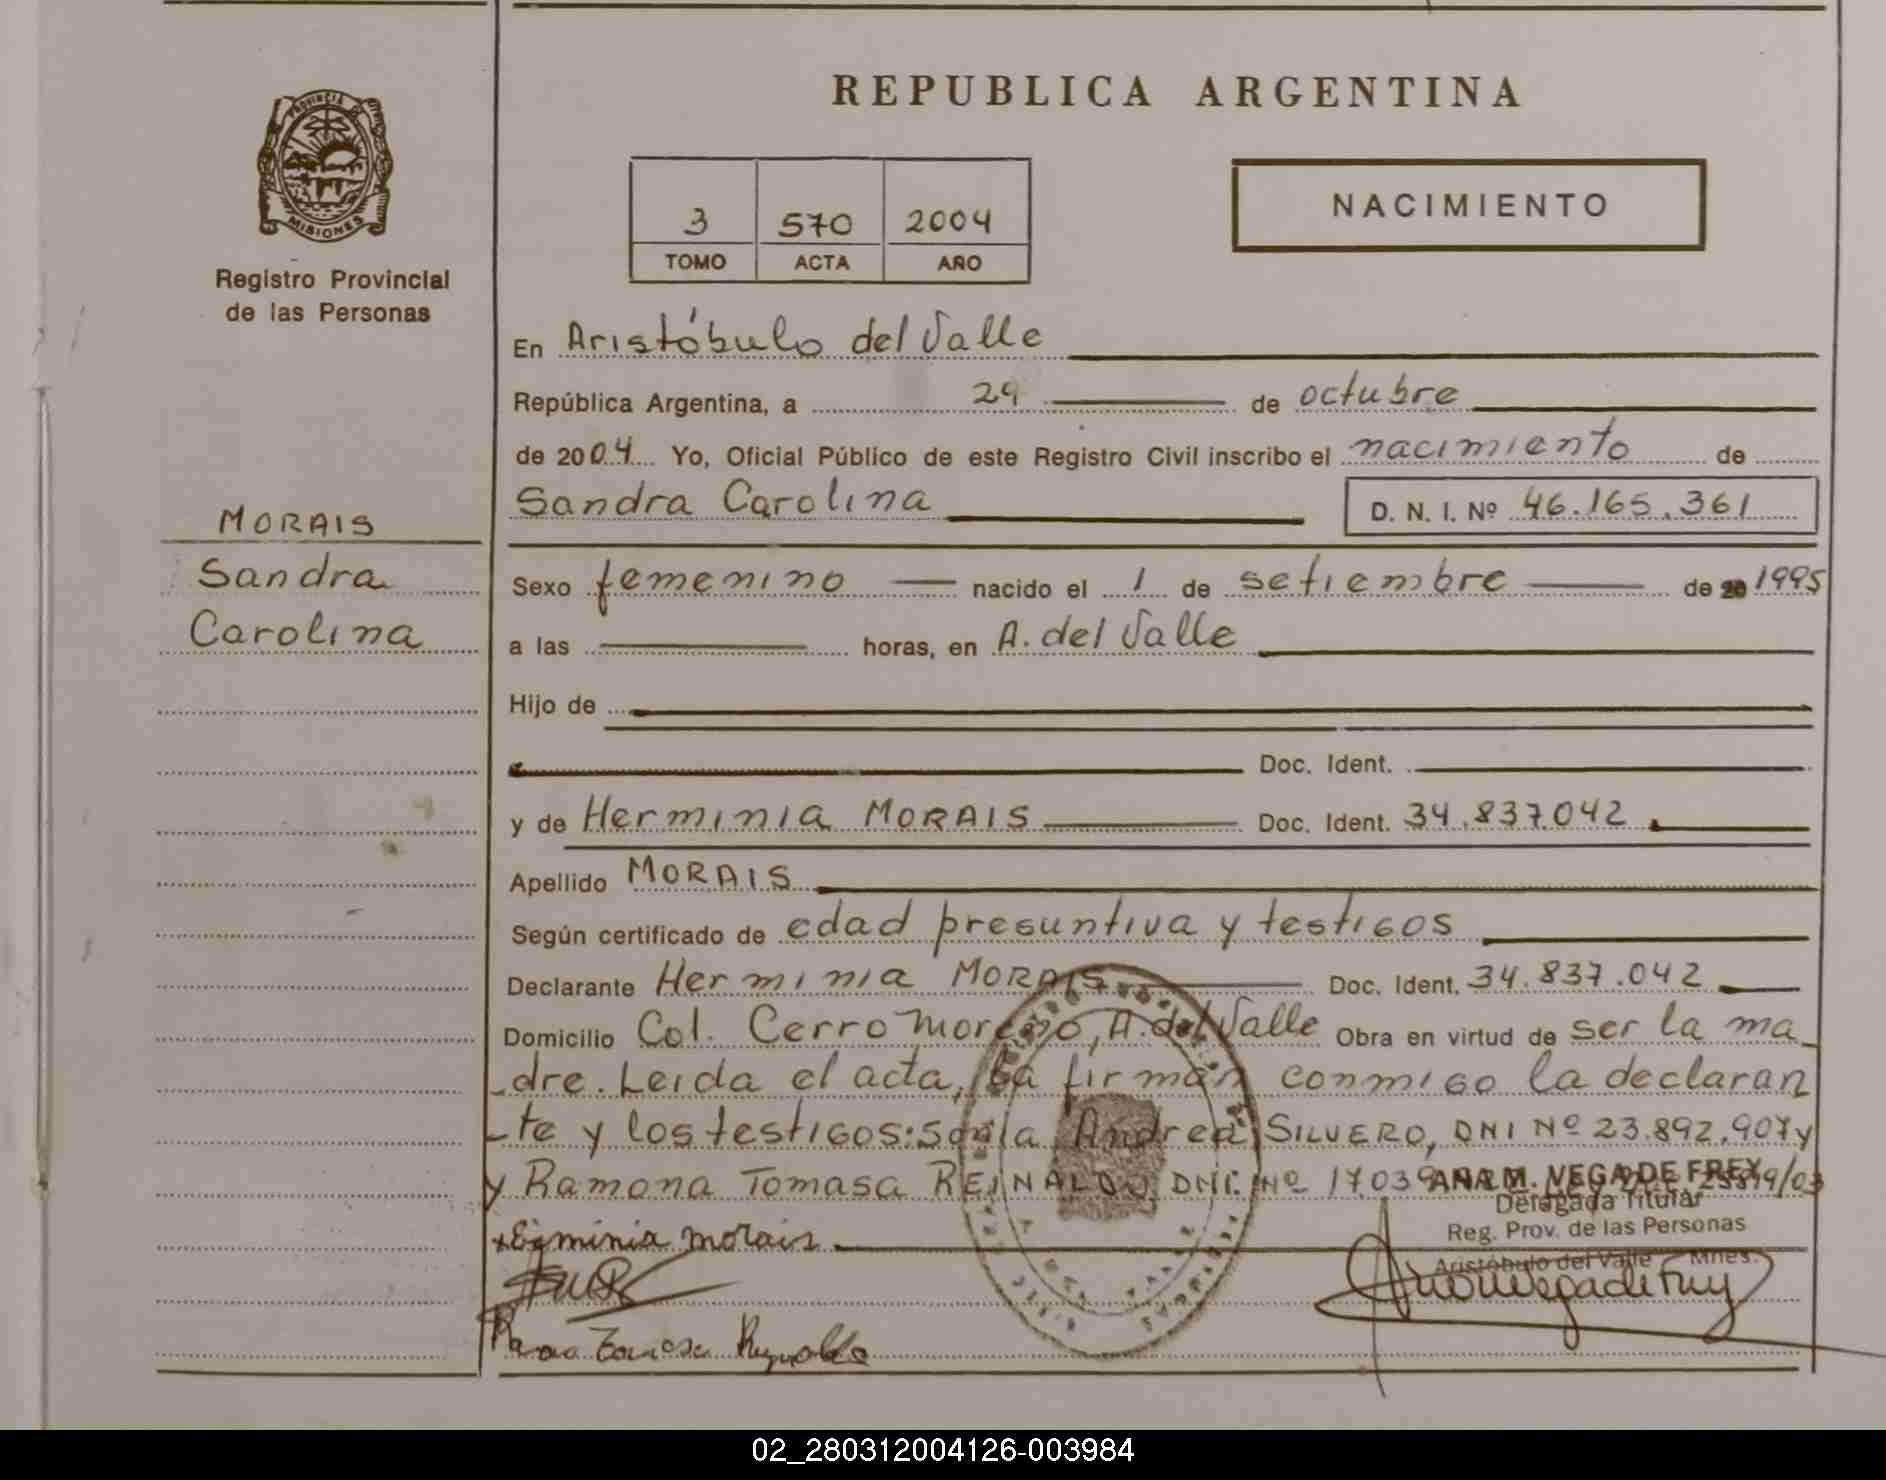 REPUBLICA ARGENTINA
PROVINCIA DE
MISIONES
Registro Provincial
de las Personas
3 570 2004
TOMO ACTA AÑO
NACIMIENTO
En Aristóbulo del Valle
República Argentina, a 29 de octubre
de 2004 Yo, Oficial Público de este Registro Civil inscribo el nacimiento de
Sandra Carolina D. N. I. Nº 46.165.361
MORAIS
Sandra
Carolina
Sexo femenino nacido el 1 de setiembre de 1995
a las horas, en A. del Valle
Hijo de
Doc. Ident.
y de Herminia MORAIS Doc. Ident. 34.837.042
Apellido MORAIS
Según certificado de edad presuntiva y testigos
Declarante Herminia MORAIS Doc. Ident. 34.837.042
Domicilio Col. Cerro Moreno, A. del Valle Obra en virtud de ser la ma
-dre. Leida el acta, la firman conmigo la declaran
-te y los testigos: Andrea SILVERO, DNI Nº 23.892.907 y
y Ramona Tomasa REINALDO, DNI. Nº
ANA M. VEGA DE FREY
Delegada Titular
Reg. Prov. de las Personas
Aristóbulo del Valle Mnes.
morais
02_280312004126-003984